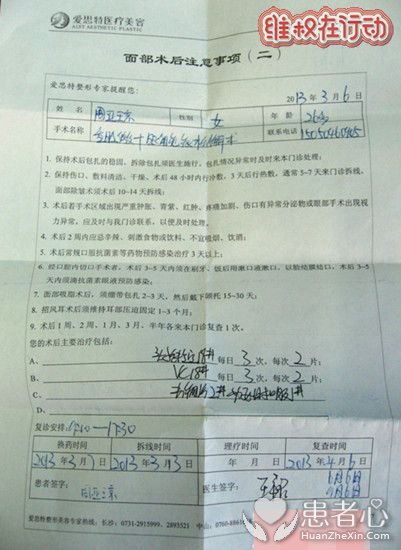 维权在行动
爱思特医疗美容
AIST AESTHETIC PLASTIC
面部术后注意事项（二）
爱思特整形专家提醒您：
2013年3月6日
姓名 周亚京 性别 女 年龄 26岁
手术名称 联系电话
1. 保持术后包扎的稳固，拆除包扎须医生施行，包扎情况异常时及时来本门诊处理；
2. 保持伤口、敷料清洁、干燥，术后48小时内行冷敷，3天后行热敷，通常5~7天来门诊拆线，
面部除皱术须术后10~14天拆线；
3. 术后若手术区域出现严重肿胀、青紫、红肿、疼痛加剧、伤口有异常分泌物或眼部手术出现视
力异常，应及时与我门诊联系，以便及时处理。
4. 术后2周内应忌辛辣、刺激食物或饮料、不宜吸烟、饮酒；
5. 术后常规口服抗菌素等药物预防感染治疗3天以上；
6. 经口腔内切口手术者，术后3~5天内须在刷牙、饭后用漱口液漱口，以
天内滴抗菌素眼液预防感染；
7. 面部吸脂术后，须绷带包扎2~3天，然后戴下颌托15~30天；
8. 招风耳术后须维持耳部压迫固定1~3个月；
9. 术后1周、2周、1月、3月、半年各来本门诊复查1次。
您的术后主要治疗包括：
A、 18# 每日 3 次，每次 2 片；
B、 VC 18# 每日 3 次，每次 2 片；
C、
D、
复诊安排：
换药时间 拆线时间 理疗时间 复查时间
2013年3月7日 2013年3月3日 年 月 日 2013年4月6日
6月6日
9月6日
患者签字： 周亚京 医生签字：
爱思特整形美容专家热线：长沙：0731-2915999、2893521 中山：0760-8886
患者心
HuanZheXin.Com